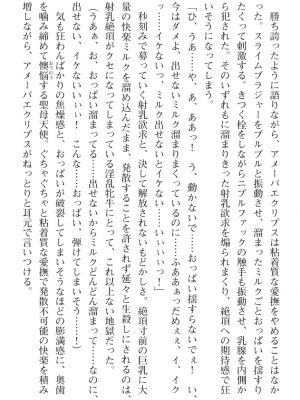 勝ち誇ったように語りながら、アメーバエクリプスは粘着質な愛撫をやめることはなか
った。スライムブラジャーをブルブルと振動させ、溜まったミルクごとおっぱいを揺すり
たくって刺激する。きつく栓をしながらニプルファックの触手も振動させ、乳腺を内側か
ら犯された。そのいずれもに溜まりきった射乳欲求を煽られまくり、絶頂への期待感で狂
「ひ、うあ……や、あ、ああっ！　う、動かないで……おっぱい揺すらないでぇ！　い、
今はダメよ、出せないミルク溜まりまくっているのに……ふああぁっだめぇぇ、イ、イク
ッ……イケないっ、ミルク出せないとイケない……いぃぃぃっ！」
　秒刻みで募っていく射乳欲求と、決して解放されないもどかしさ。絶頂寸前の巨乳に大
量の快楽ミルクを溜め込んだまま、発散することを許されず延々と生殺しにされるのは、
射乳絶頂がクセになってしまっている淫乱牝牛にとって、これ以上ない地獄だった。
（うあぁ、お、おっぱい溜まってる……出せないからミルクどんどん溜まって……なのに、
出せない、イケないいぃぃ！　こんな、うああ、お、おっぱい、弾けてしまいそう！）
　気も狂わんばかりの焦燥感と、おっぱいが破裂してしまいそうなほどの膨満感に、奥歯
を噛み締めて懊悩する聖母天使。ぐちゃぐちゃと粘着質な愛撫で発散不可能の快楽を積み
増しながら、アメーバエクリプスがねっとりと耳元で言いつける。